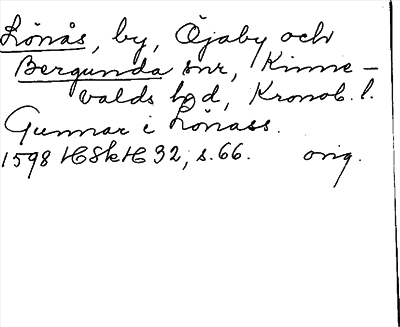 Lönås, by, Öjaby och
Bergunda snr, Kinne-
valds hd, Kronob. l.
Gunnar i Lönass.
1598 HSkH 32, s. 66. orig.